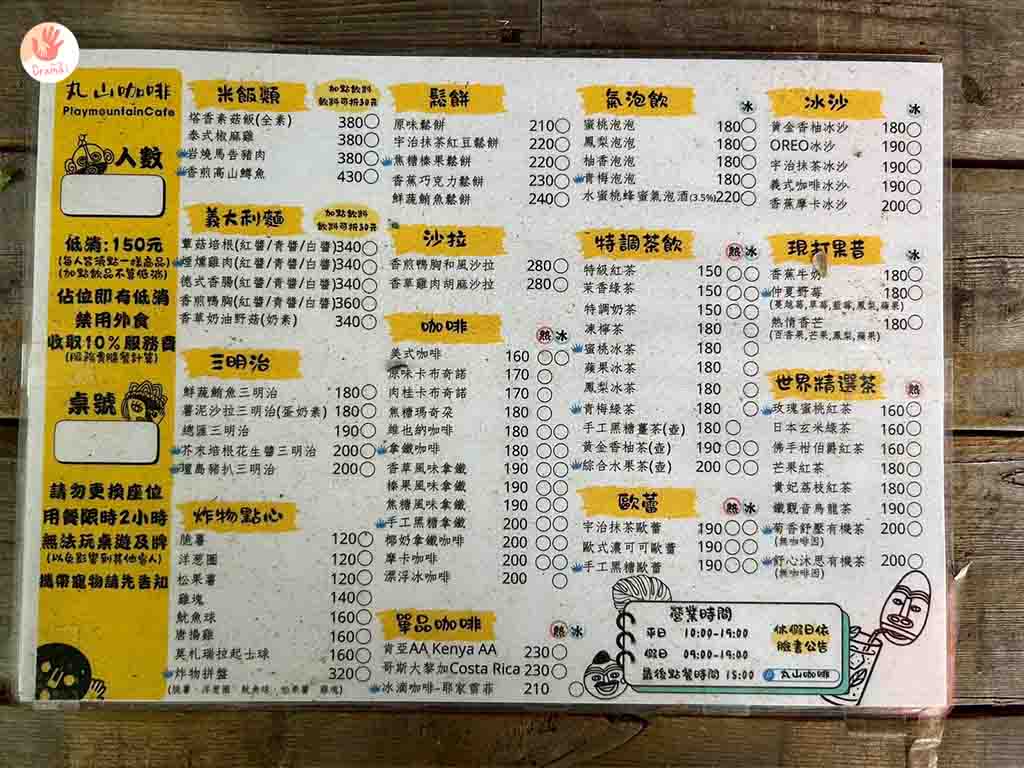 Drama
丸山咖啡
PlaymountainCafe
人數
低消:150元
(每人皆須點一樣商品)
(加點飲品不算低消)
佔位即有低消
禁用外食
收取10%服務費
(服務費隨餐計算)
桌號
請勿更換座位
用餐限時2小時
無法玩桌遊及牌
(以免影響到其他客人)
攜帶寵物請先告知
米飯類
加點飲料
飲料可折30元
塔香素菇飯(全素) 380
泰式椒麻雞 380
岩燒馬告豬肉 380
香煎高山鱒魚 430
義大利麵
加點飲料
飲料可折30元
蕈菇培根(紅醬/青醬/白醬)340
煙燻雞肉(紅醬/青醬/白醬)340
德式香腸(紅醬/青醬/白醬)340
香煎鴨胸(紅醬/青醬/白醬)360
香草奶油野菇(奶素) 340
三明治
鮮蔬鮪魚三明治 180
薯泥沙拉三明治(蛋奶素) 180
總匯三明治 190
芥末培根花生醬三明治 200
壇島豬扒三明治 200
炸物點心
脆薯 120
洋蔥圈 120
松果薯 120
雞塊 140
魷魚球 160
唐揚雞 160
莫札瑞拉起士球 160
炸物拼盤 320
(脆薯、洋蔥圈、魷魚球、松果薯、雞塊)
鬆餅
原味鬆餅 210
宇治抹茶紅豆鬆餅 220
焦糖榛果鬆餅 220
香蕉巧克力鬆餅 230
鮮蔬鮪魚鬆餅 240
沙拉
香煎鴨胸和風沙拉 280
香草雞肉胡麻沙拉 280
咖啡 熱 冰
美式咖啡 160
原味卡布奇諾 170
肉桂卡布奇諾 170
焦糖瑪奇朵 180
維也納咖啡 180
拿鐵咖啡 180
香草風味拿鐵 190
榛果風味拿鐵 190
焦糖風味拿鐵 190
手工黑糖拿鐵 200
椰奶拿鐵咖啡 200
摩卡咖啡 200
漂浮冰咖啡 200
單品咖啡 熱 冰
肯亞AA Kenya AA 230
哥斯大黎加Costa Rica 230
冰滴咖啡-耶家雪菲 210
氣泡飲 冰
蜜桃泡泡 180
鳳梨泡泡 180
柚香泡泡 180
青梅泡泡 180
水蜜桃蜂蜜氣泡酒(3.5%)220
特調茶飲 熱 冰
特級紅茶 150
茉香綠茶 150
特調奶茶 150
凍檸茶 180
蜜桃冰茶 180
蘋果冰茶 180
鳳梨冰茶 180
青梅綠茶 180
手工黑糖薑茶(壺) 180
黃金香柚茶(壺) 190
綜合水果茶(壺) 200
歐蕾 熱 冰
宇治抹茶歐蕾 190
歐式濃可可歐蕾 190
手工黑糖歐蕾 190
冰沙 冰
黃金香柚冰沙 180
OREO冰沙 190
宇治抹茶冰沙 190
義式咖啡冰沙 190
香蕉摩卡冰沙 200
現打果昔 冰
香蕉牛奶 180
仲夏野莓 180
(蔓越莓,草莓,藍莓,鳳梨,蘋果)
熱情香芒 180
(百香果,芒果,鳳梨,蘋果)
世界精選茶 熱
玫瑰蜜桃紅茶 160
日本玄米綠茶 160
佛手柑伯爵紅茶 160
芒果紅茶 180
貴妃荔枝紅茶 180
鐵觀音烏龍茶 190
菊香舒壓有機茶 200
(無咖啡因)
舒心沐思有機茶 200
(無咖啡因)
營業時間
平日 10:00-19:00
假日 09:00-19:00
最後點餐時間 18:00
休假日依
臉書公告
丸山咖啡